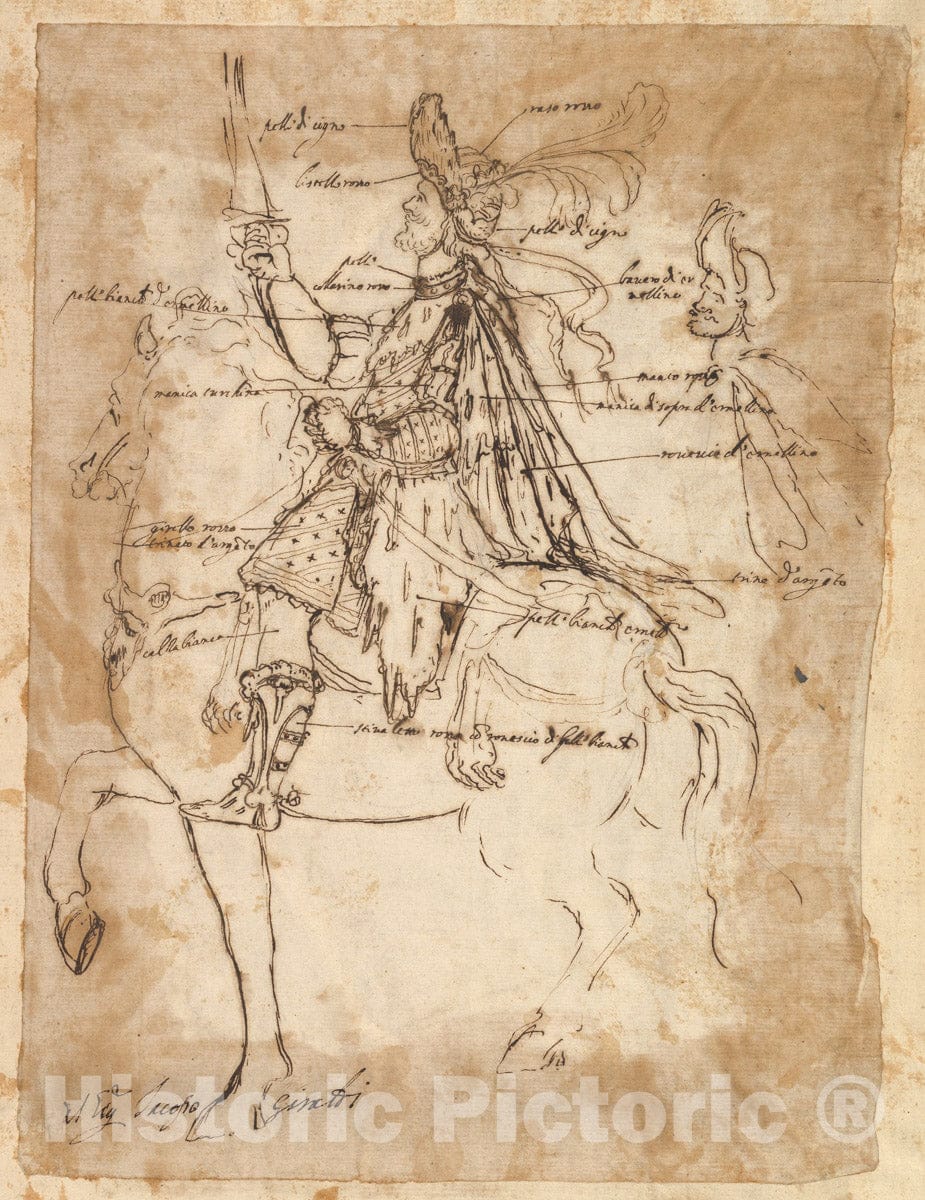 raso rosso
pelle di cigno
listello rosso
pelle di cigno
pelle
colarino rosso
bavero di er
mellino
pelle bianca d'ermellino
manica turchina
manto rosso
manica di sopra d'ermellino
rovescio d'ermellino
girello rosso
trinato d'argẽto
trina d'argẽto
pelle bianca
calla bianca
rosso cõ rovescio di pelle bianca
Il Sig.
Jacopo
Giraldi
Historic Pictoric ®